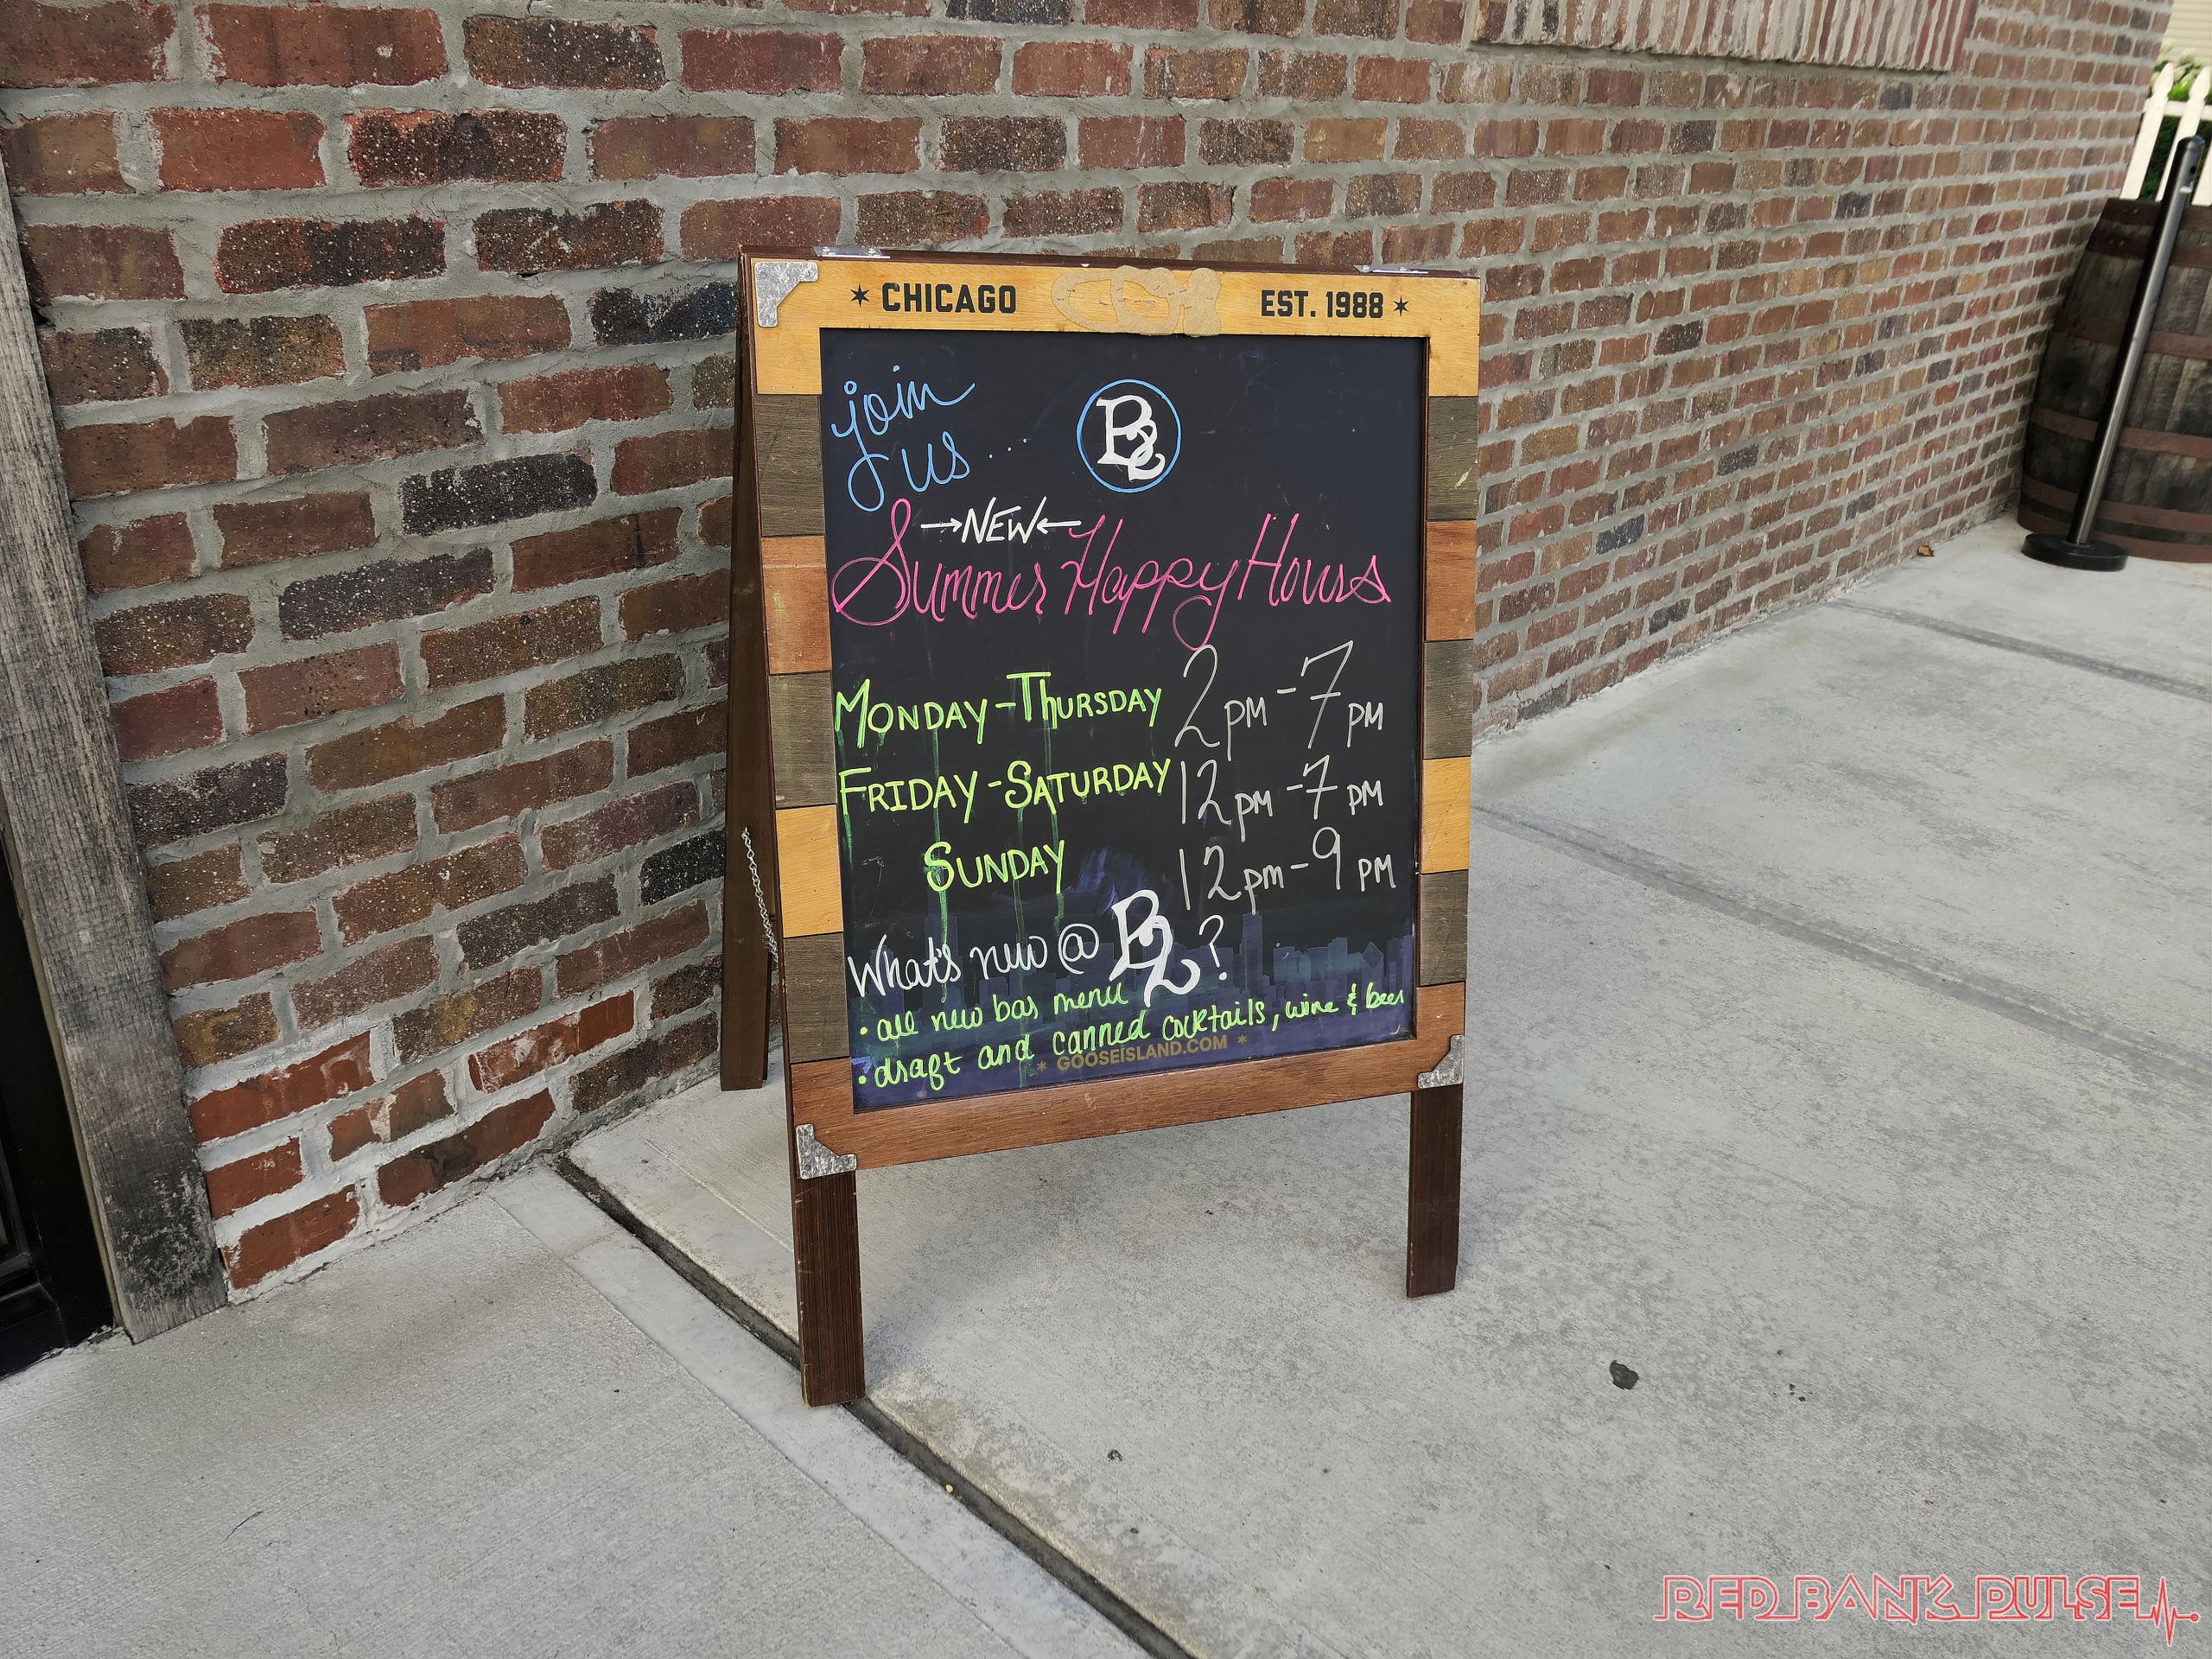 * CHICAGO
EST. 1988 *
join
us...
B2
→NEW←
Summer Happy Hours
MONDAY-THURSDAY 2pm-7pm
FRIDAY-SATURDAY 12pm-7pm
SUNDAY 12pm-9pm
What's new @ B2?
• all new bar menu
• draft and canned cocktails, wine & beer
* GOOSEISLAND.COM *
RED BANK PULSE